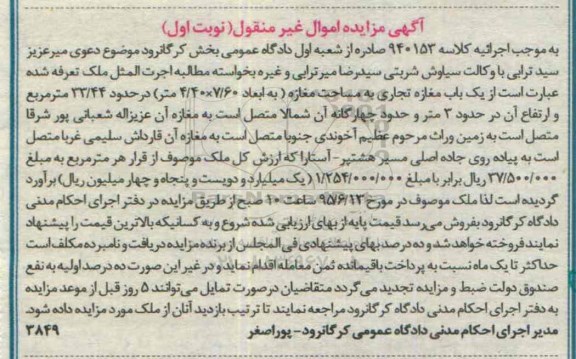 آگهی مزایده اموال غیر منقول( نوبت اول)
به موجب اجرائیه کلاسه ۹۴۰۱۵۳ صادره از شعبه اول دادگاه عمومی بخش کرگانرود موضوع دعوی میرعزیز
سید ترابی با وکالت سیاوش شربتی سیدرضا میرترابی و غیره بخواسته مطالبه اجرت المثل ملک تعرفه شده
عبارت است از یک باب مغازه تجاری به مساحت مغازه ( به ابعاد ۷/۶۰×۴/۴۰ متر) درحدود ۳۳/۴۴ مترمربع
و ارتفاع آن در حدود ۳ متر و حدود چهارگانه آن شمالا متصل است به مغازه آن عزیزاله شعبانی پور شرقا
متصل است به زمین وراث مرحوم عظیم آخوندی جنوبا متصل است به مغازه آن قارداش سلیمی غربا متصل
است به پیاده روی جاده اصلی مسیر هشتپر - آستارا که ارزش کل ملک موصوف از قرار هر مترمربع به مبلغ
۳۷/۵۰۰/۰۰۰ ریال برابر با مبلغ ۱/۲۵۴/۰۰۰/۰۰۰ ( یک میلیارد و دویست و پنجاه و چهار میلیون ریال) برآورد
گردیده است لذا ملک موصوف در مورخ ۹۵/۶/۱۳ ساعت ۱۰ صبح از طریق مزایده در دفتر اجرای احکام مدنی
دادگاه کرگانرود بفروش می رسد قیمت پایه از بهای ارزیابی شده شروع و به کسانیکه بالاترین قیمت را پیشنهاد
نمایند فروخته خواهد شد و ده درصد بهای پیشنهادی فی المجلس از برنده مزایده دریافت و نامبرده مکلف است
حداکثر تا یک ماه نسبت به پرداخت باقیمانده ثمن معامله اقدام نماید و در غیر این صورت ده درصد اولیه به نفع
صندوق دولت ضبط و مزایده تجدید می گردد متقاضیان در صورت تمایل می توانند ۵ روز قبل از موعد مزایده
به دفتر اجرای احکام مدنی دادگاه کرگانرود مراجعه نمایند تا ترتیب بازدید آنان از ملک مورد مزایده داده شود.
مدیر اجرای احکام مدنی دادگاه عمومی کرگانرود- پوراصغر ۳۸۴۹